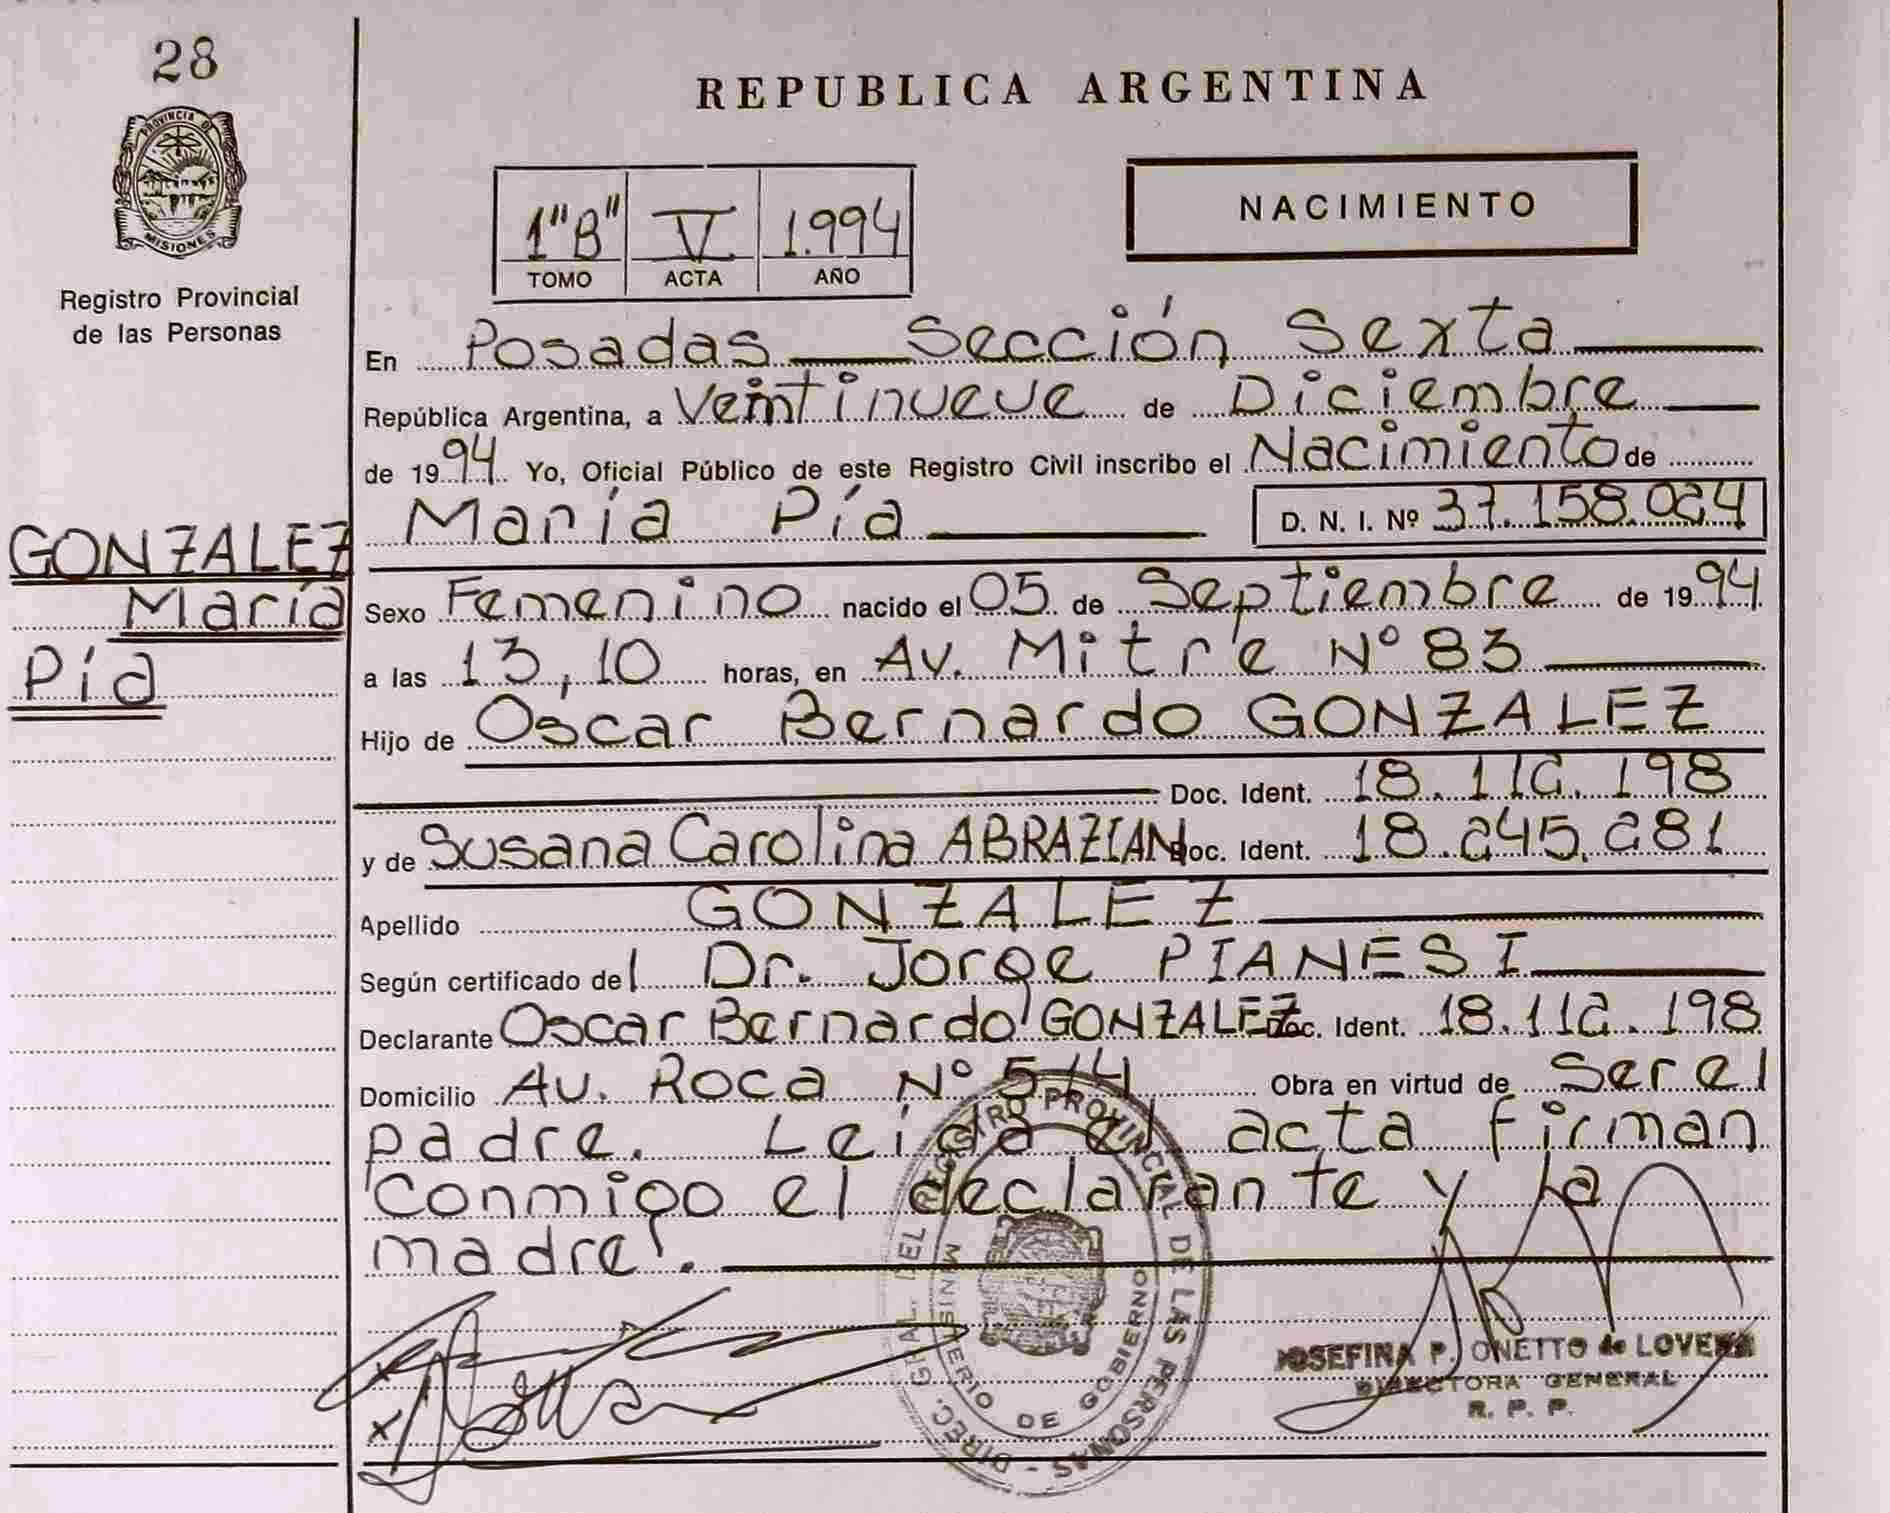 28
PROVINCIA DE
MISIONES
Registro Provincial
de las Personas
GONZALEZ
María
Pía
REPUBLICA ARGENTINA
1"B" V 1.994
TOMO ACTA AÑO
NACIMIENTO
En Posadas Sección Sexta
República Argentina, a Veintinueve de Diciembre
de 1994 Yo, Oficial Público de este Registro Civil inscribo el Nacimiento de
María Pía D. N. I. Nº 37.158.024
Sexo Femenino nacido el 05 de Septiembre de 1994
a las 13,10 horas, en Av. Mitre Nº 83
Hijo de Oscar Bernardo GONZALEZ
Doc. Ident. 18.112.198
y de Susana Carolina ABRAZIAN Doc. Ident. 18.245.281
Apellido GONZALEZ
Según certificado del Dr. Jorge PIANESI
Declarante Oscar Bernardo GONZALEZ Doc. Ident. 18.112.198
Domicilio Av. Roca Nº Obra en virtud de Ser el
padre. Leída el acta firman
conmigo el declarante y la
madre.
DIREC. GRAL. DEL REGISTRO PROVINCIAL DE LAS PERSONAS -
MINISTERIO DE GOBIERNO
JOSEFINA P. ONETTO de
DIRECTORA GENERAL
R. P. P.